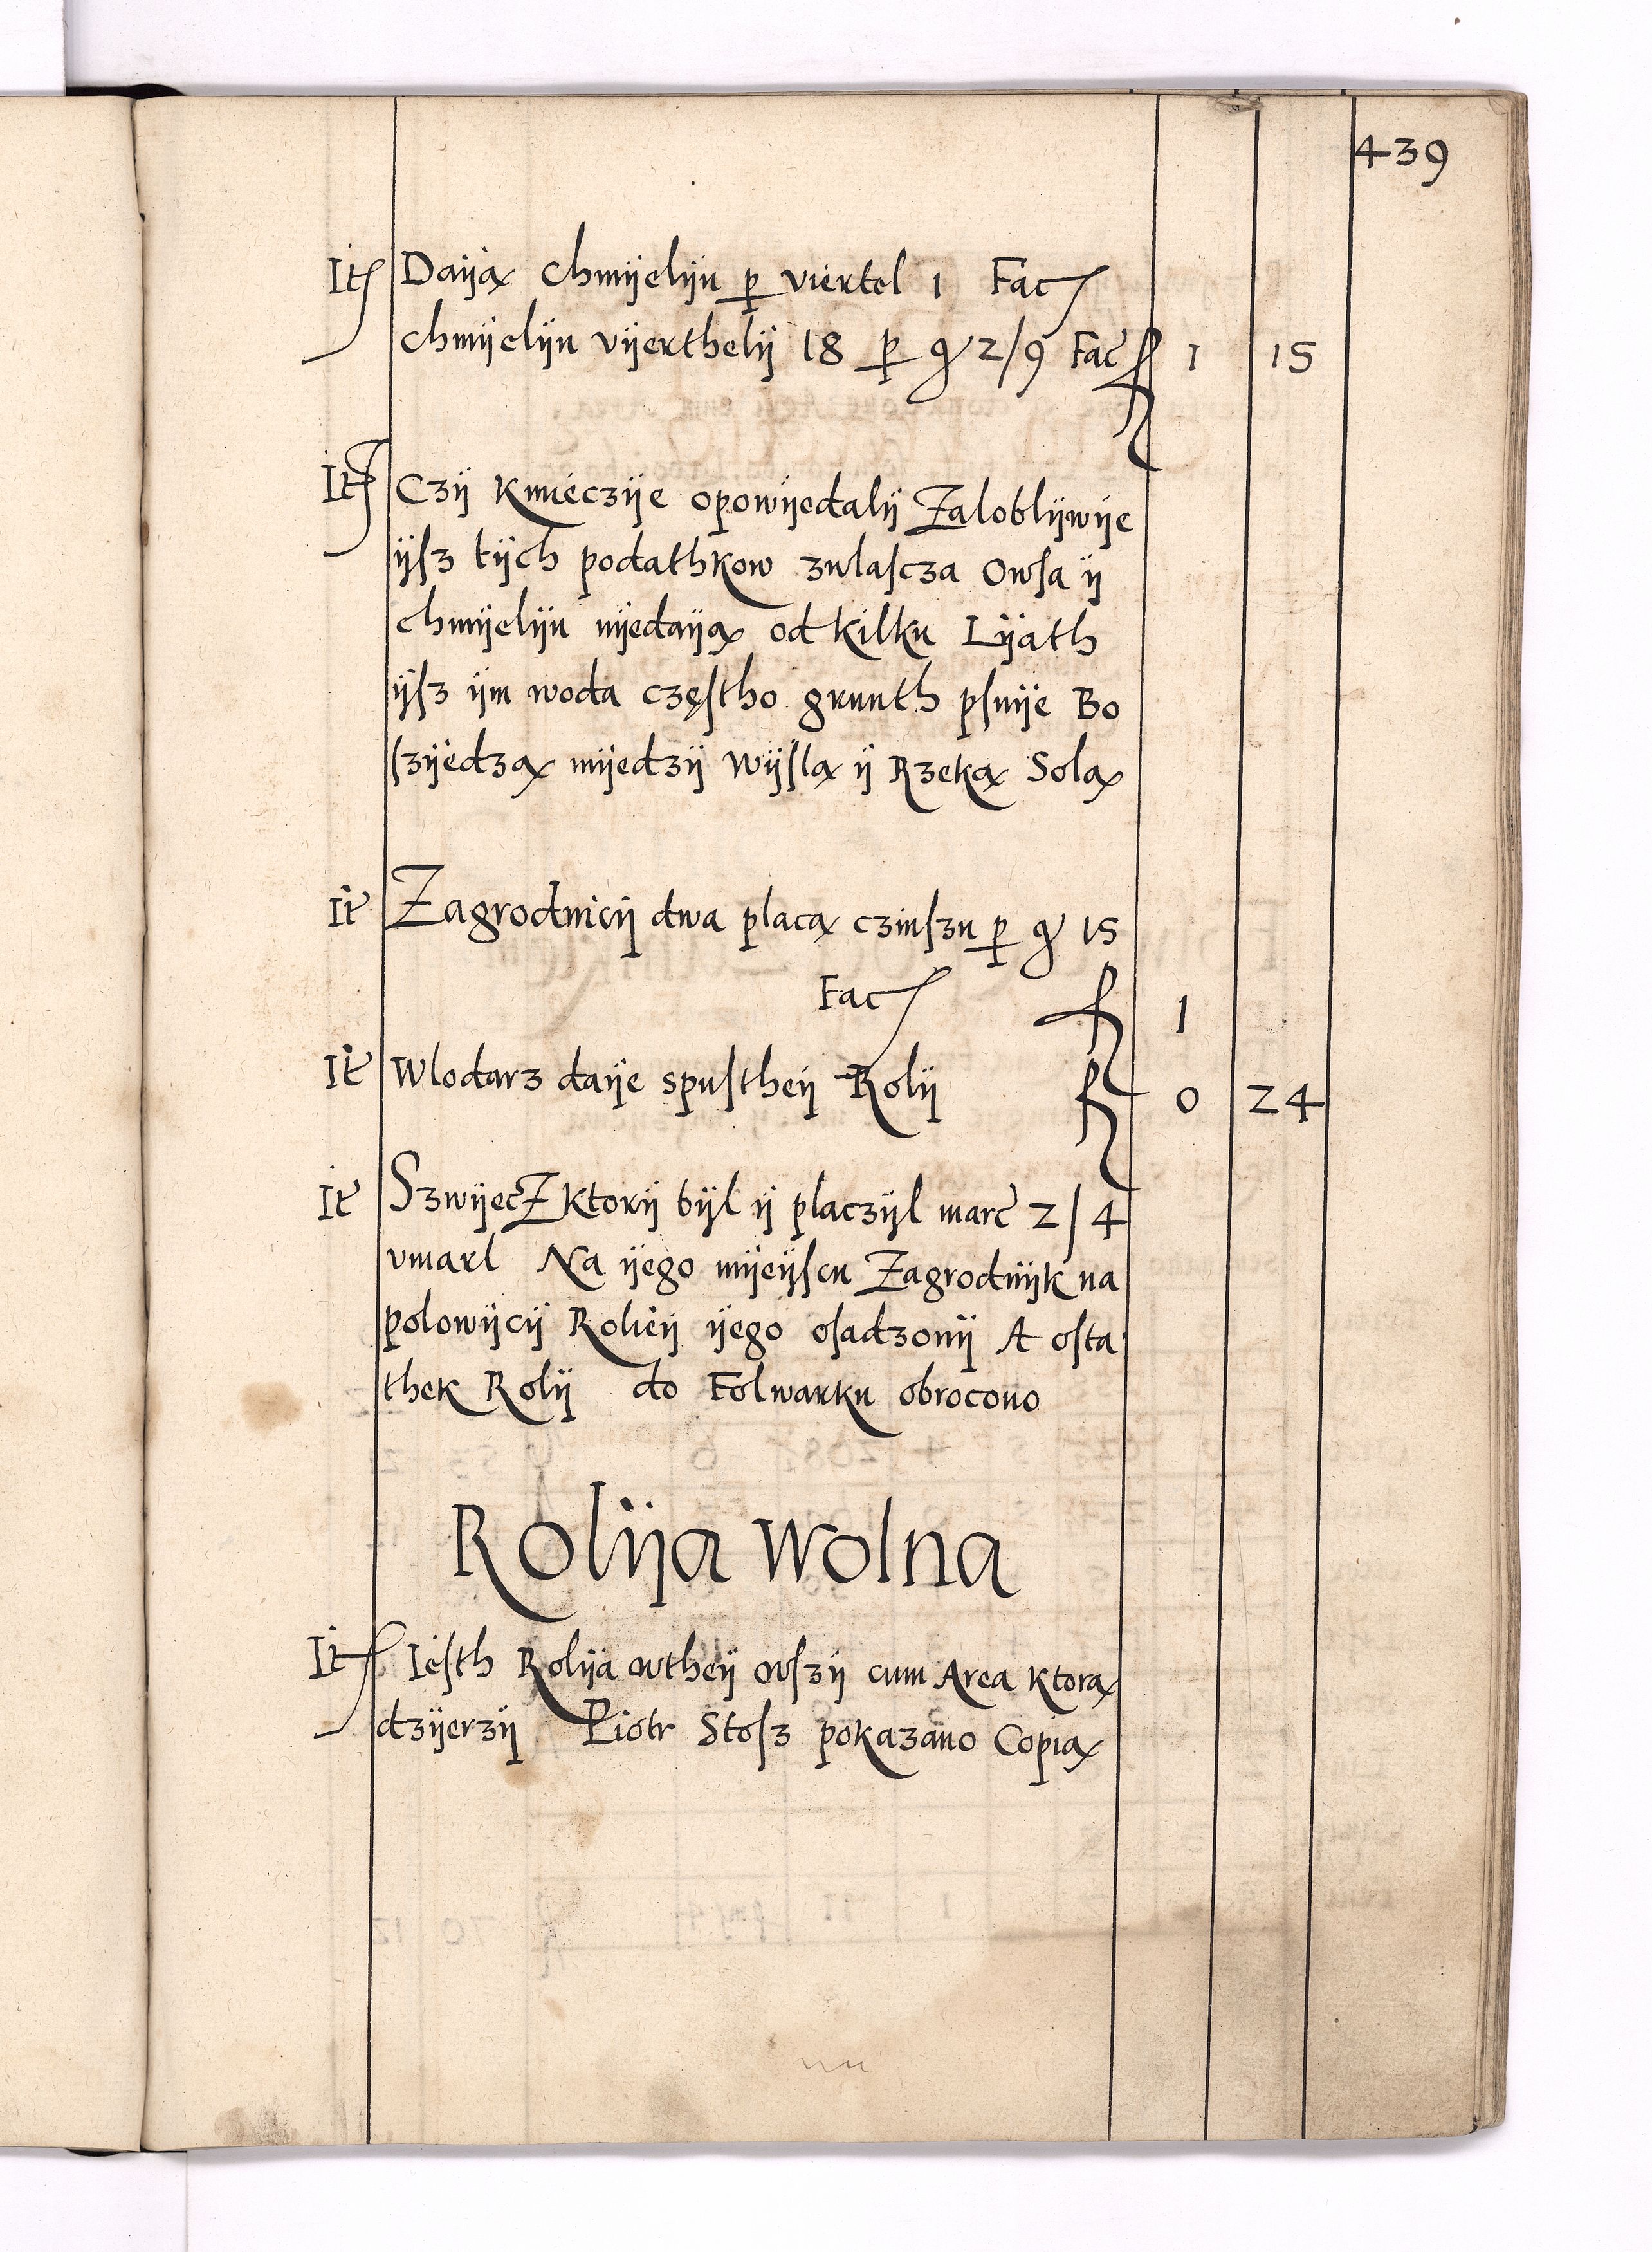 439
It Daÿą Chmÿelÿu p viertel 1 Fac
chmÿelÿu vÿerthelÿ 18 p gr 2/9 Fac f 1 15
It Czÿ Kmieczÿe opowÿedalÿ Zaloblÿwÿe
ÿſz tÿch podathkow zwlaſcza Owſa ÿ
chmÿelÿu nÿedaÿą od kilku Lÿath
ÿſz ÿm woda częſtho grunth pſuÿe Bo
ſzÿedzą mÿedzÿ Wÿſlą ÿ Rzeką Solą
It Zagrodnicÿ dwa placą czinſzu p gr 15
Fac f 1
It Wlodarz daÿe spuſtheÿ Rolÿ f 0 24
It Szwÿecz Ktorÿ bÿl ÿ placzÿl marc 2/4
vmarl Na ÿego mÿeÿſcu Zagrodnÿk na
polowÿcÿ Rolieÿ ÿego oſadzonÿ A oſta
thek Rolÿ do Folwarku obrocono
Rolÿa Wolna
It Ieſth Rolÿa wtheÿ wſzÿ cum Area Ktorą
dzÿerzÿ Piotr Stoſz pokazano Copią